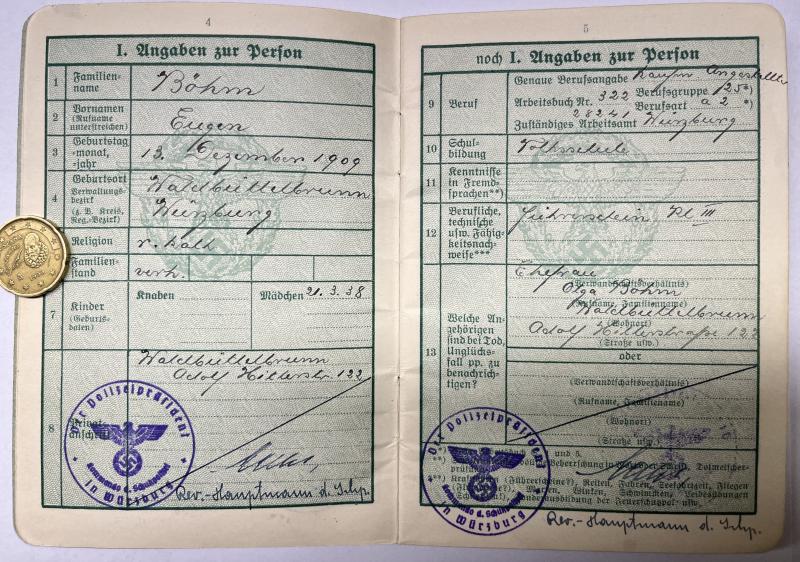 4
I. Angaben zur Person
1 Familien-
name
Böhm
2 Vornamen
(Rufname
unterstreichen)
Eugen
3 Geburtstag
-monat,
-jahr
13. Dezember 1909
4 Geburtsort
Verwaltungs-
bezirk
(z. B. Kreis,
Reg.-Bezirk)
Waldbüttelbrunn
Würzburg
5 Religion
r. kath
6 Familien-
stand
verh.
7 Kinder
(Geburts-
daten)
Knaben
Mädchen 21.3.38
8 Privat-
anschrift
Waldbüttelbrunn
Adolf Hitlerstr. 122
Der Polizeipräsident
Kommando d. Schutzpolizei
in Würzburg
Rev.-Hauptmann d. Schp.
5
noch I. Angaben zur Person
9 Beruf
Genaue Berufsangabe Kaufm. Angestellter
Arbeitsbuch Nr. 322 Berufsgruppe 25 *)
28241 Berufsart a 2 *)
Zuständiges Arbeitsamt Würzburg
10 Schul-
bildung
Volksschule
11 Kenntnisse
in Fremd-
sprachen**)
12 Berufliche,
technische
usw. Fähig-
keitsnach-
weise***
Führerschein Kl III
13 Welche An-
gehörigen
sind bei Tod,
Unglücks-
fall pp. zu
benachrich-
tigen?
Ehefrau
(Verwandtschaftsverhältnis)
Olga Böhm
(Rufname, Familienname)
Waldbüttelbrunn
(Wohnort)
Adolf Hitlerstraße 122
(Straße usw.)
oder
(Verwandtschaftsverhältnis)
(Rufname, Familienname)
(Wohnort)
(Straße usw.)
und 5.
Beherrschung in Wort oder Schrift, Dolmetscher-
prüfung
(Führerscheine?), Reiten, Fahren, Seefahrtzeit, Fliegen
Morsen, Blinken, Schwimmen, Leibesübungen
Ausbildung der Feuerschutzpol. usw.
Der Polizeipräsident
Kommando d. Schutzpolizei
in Würzburg
Rev.-Hauptmann d. Schp.